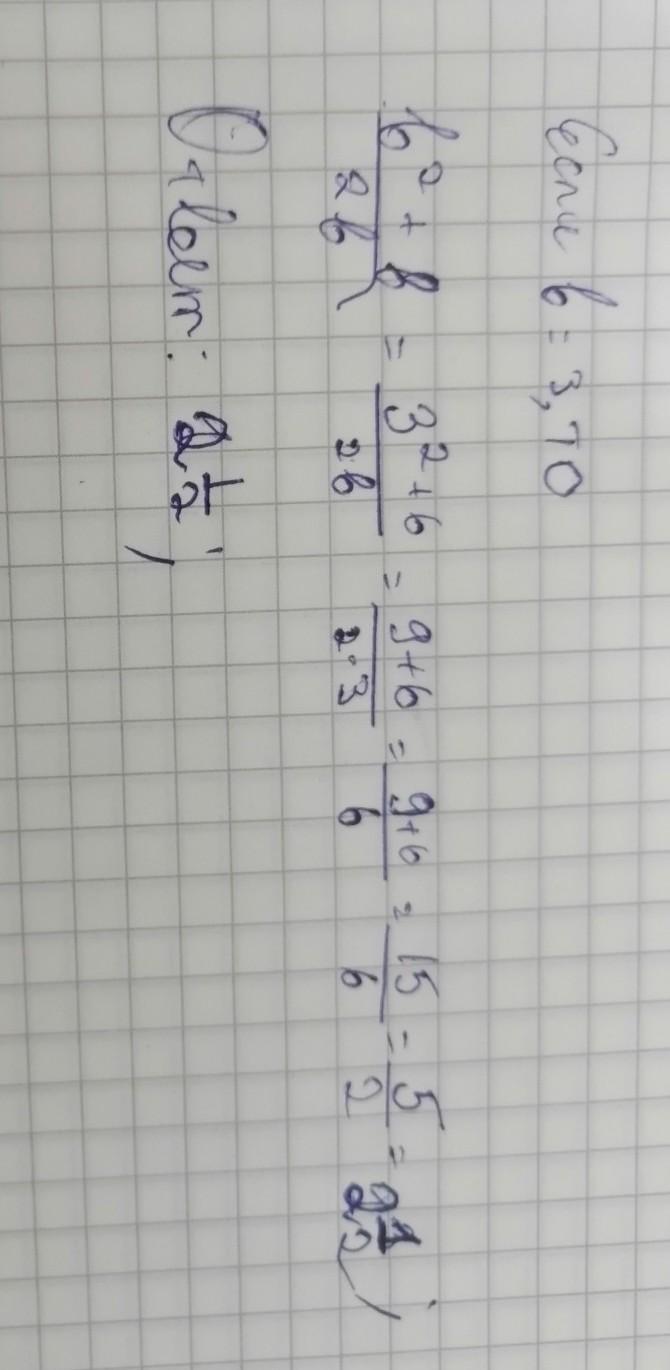 Если b = 3, ТО
(b² + 6)/(2b) = (3² + 6)/(2b) = (9+6)/(2·3) = (9+6)/6 = 15/6 = 5/2 = 2 1/2;
Ответ: 2 1/2;